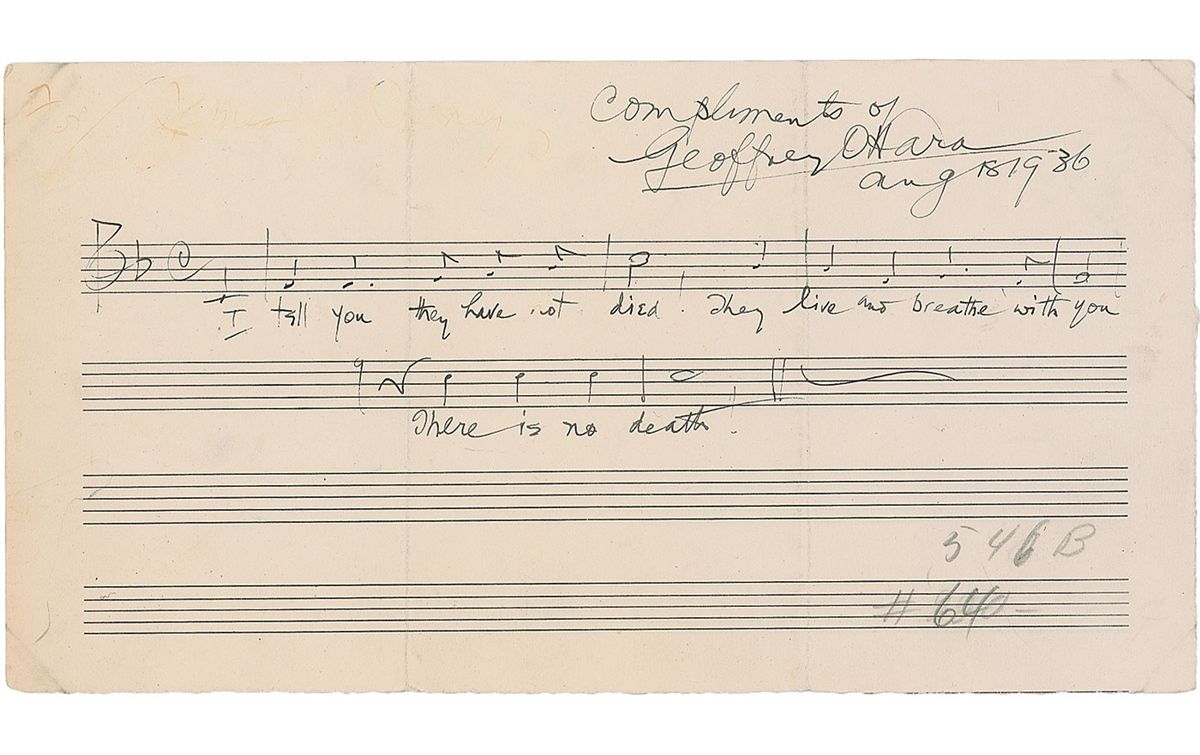 Compliments of
Geoffrey O'Hara
Aug 18 1936
I tell you they have not died. They live and breathe with you
There is no death!
546B
# 640-